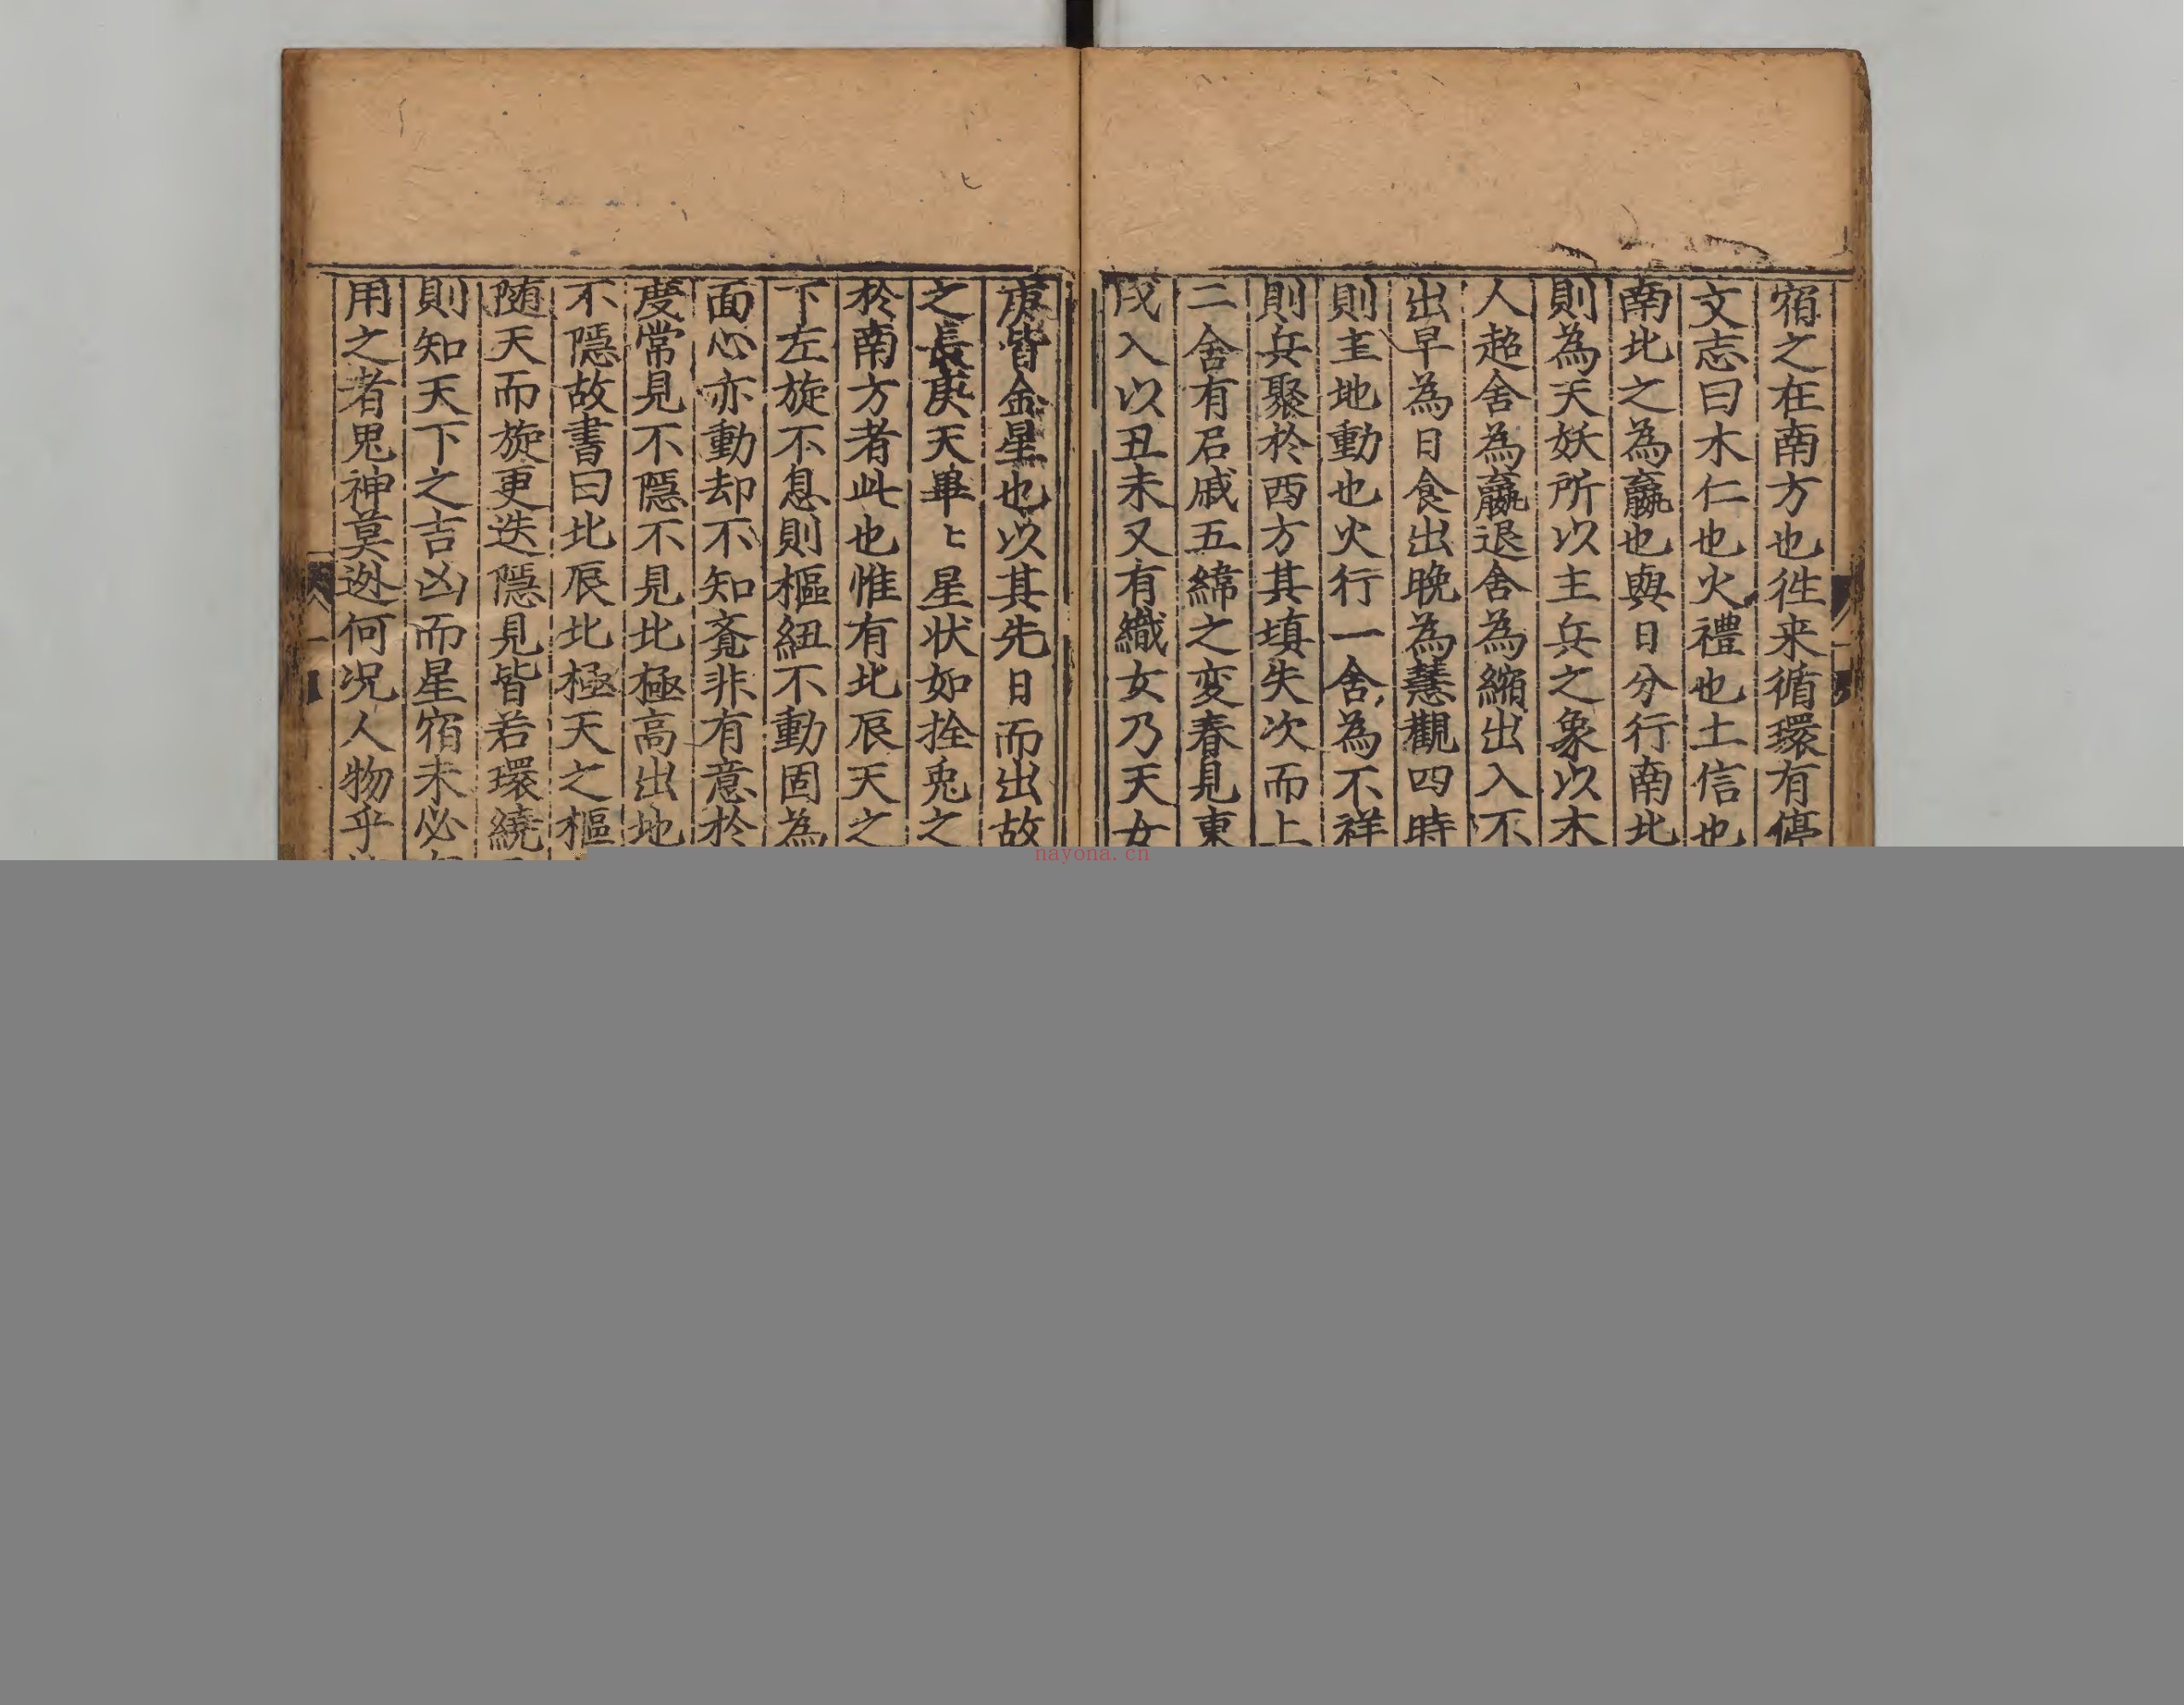 宿之在南方也徃来循環有停
文志曰木仁也火禮也土信也
南北之為嬴也與日分行南北
則為天妖所以主兵之象以木
人超舍為嬴退舍為縮出入不
出早為日食出晚為慧觀四時
則主地動也火行一舍為不祥
則兵聚於西方其填失次而上
二舍有后戚五緯之变春見東
戌入以丑未又有織女乃天女
庚皆金星也以其先日而出故
之長庚天畢〻星状如拴兎之
於南方者此也惟有北辰天之
下左旋不息則樞紐不動固為
面心亦動却不知斍非有意於
度常見不隱不見北極高出地
不隱故書曰北辰北極天之樞
随天而旋更迭隱見皆若環繞
則知天下之吉凶而星宿未必
用之者鬼神莫迯何况人物乎
nayona.cn